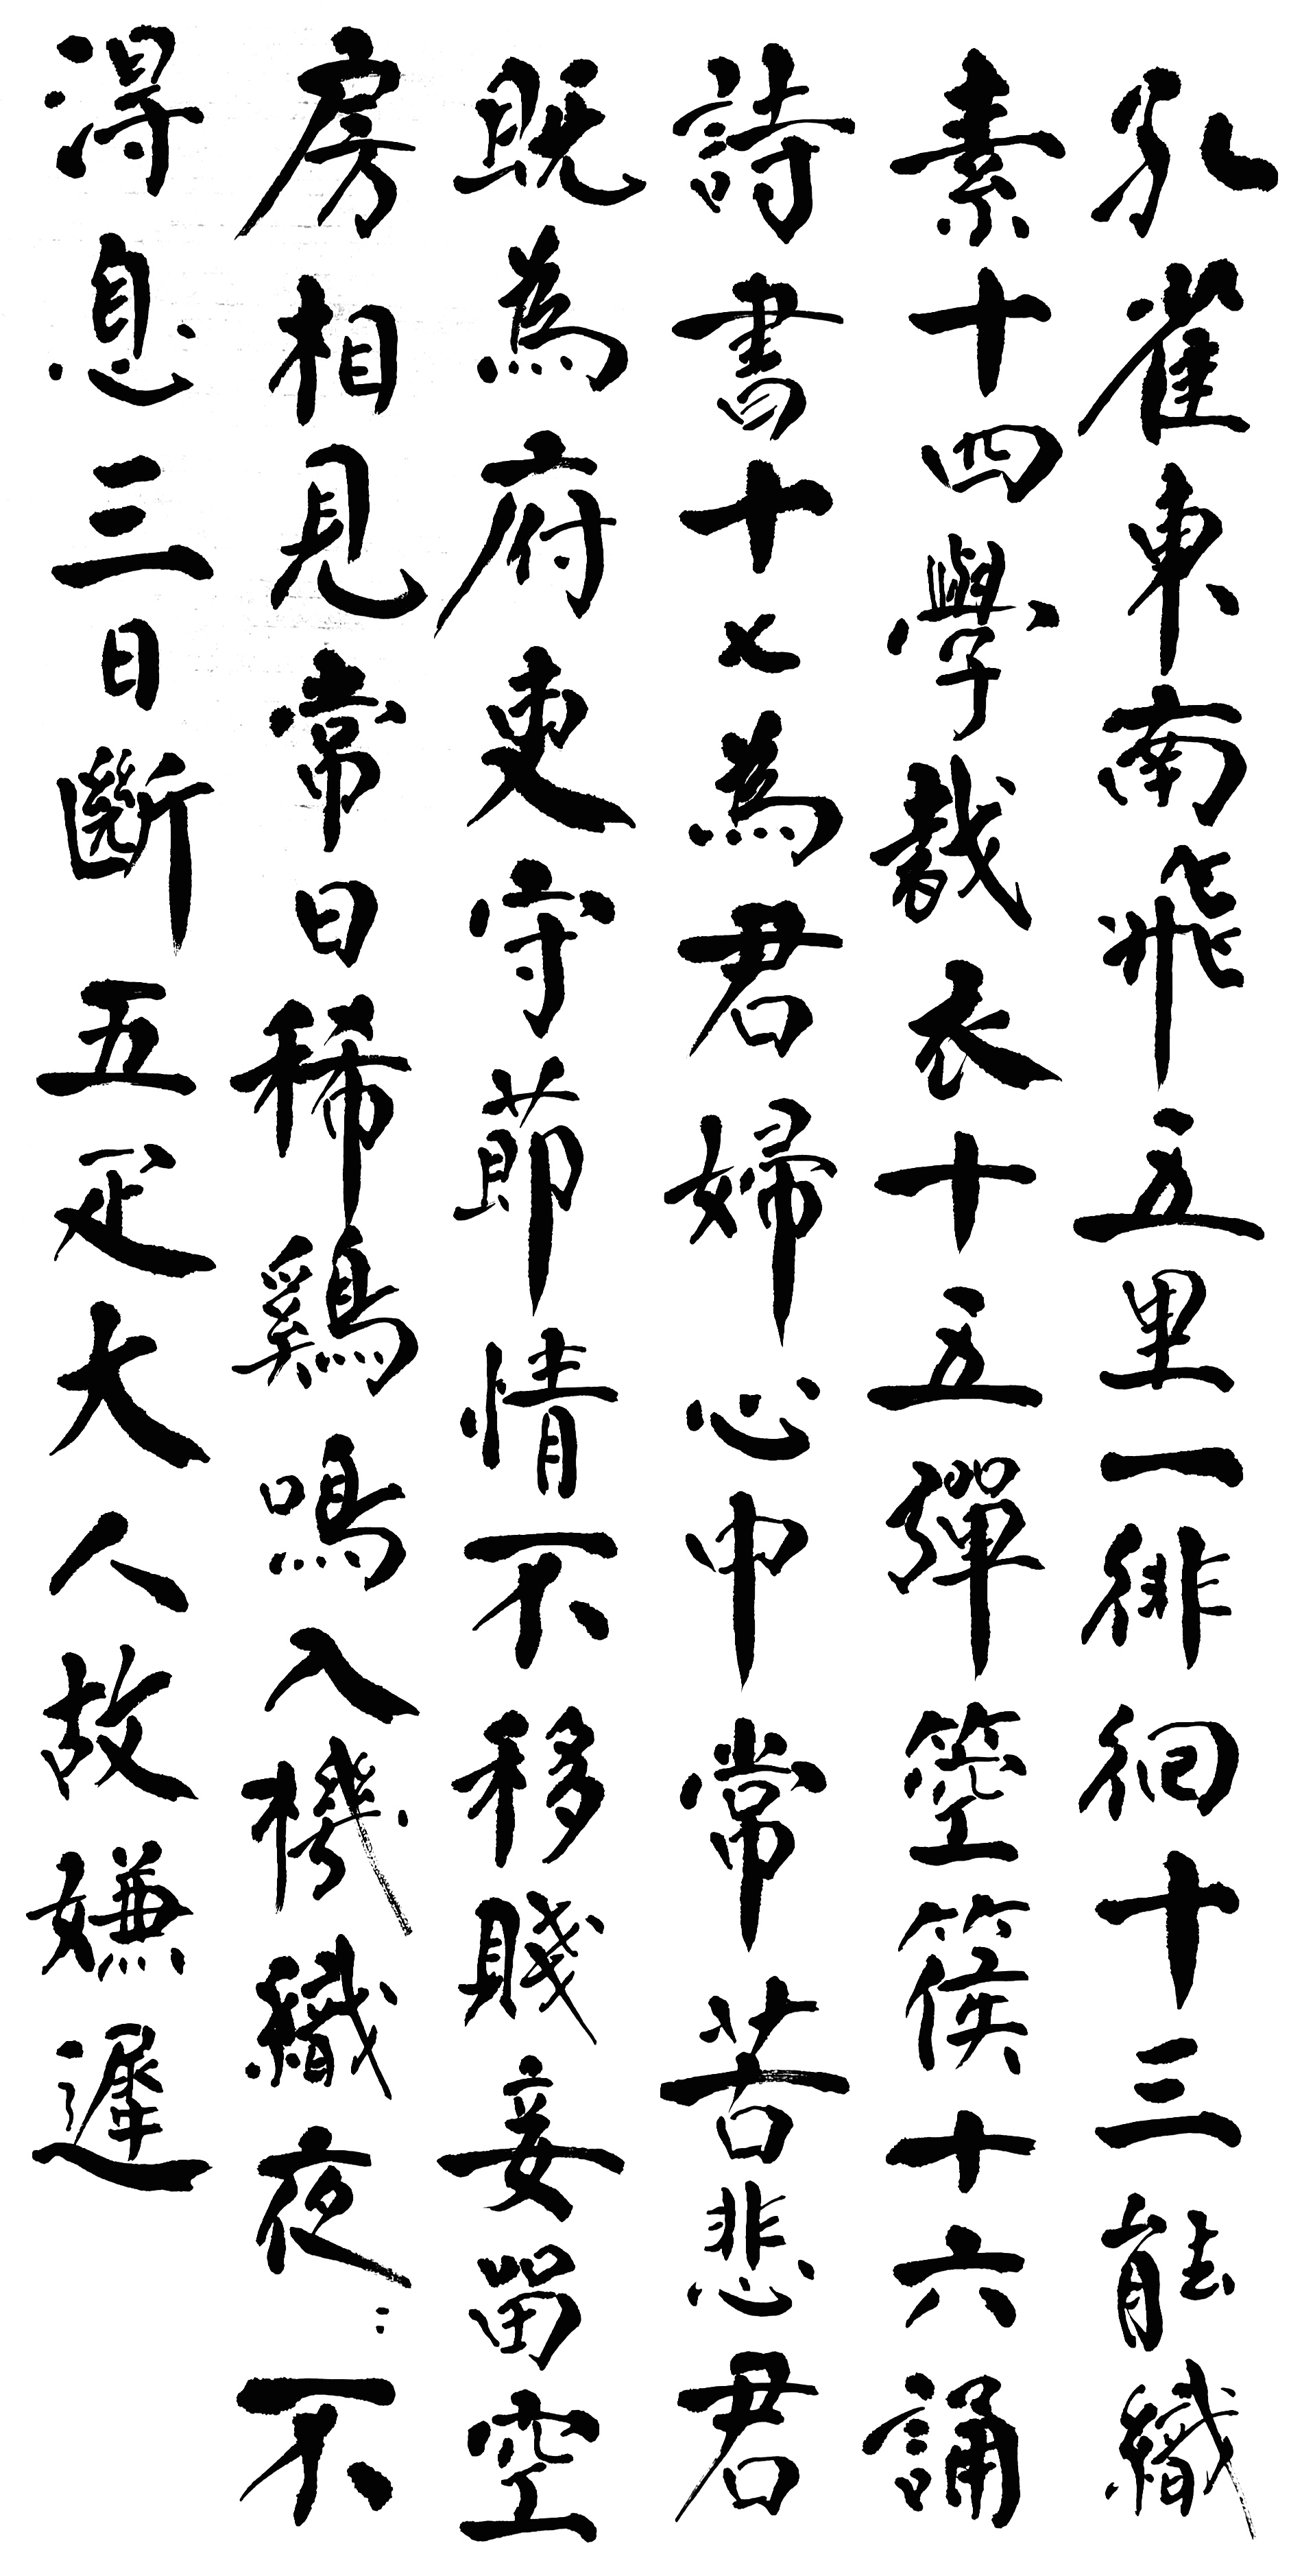 孔雀東南飛五里一徘徊十三能織
素十四學裁衣十五彈箜篌十六誦
詩書十七為君婦心中常苦悲君
既為府吏守節情不移賤妾留空
房相見常日稀鷄鳴入機織夜〻不
得息三日斷五疋大人故嫌遲